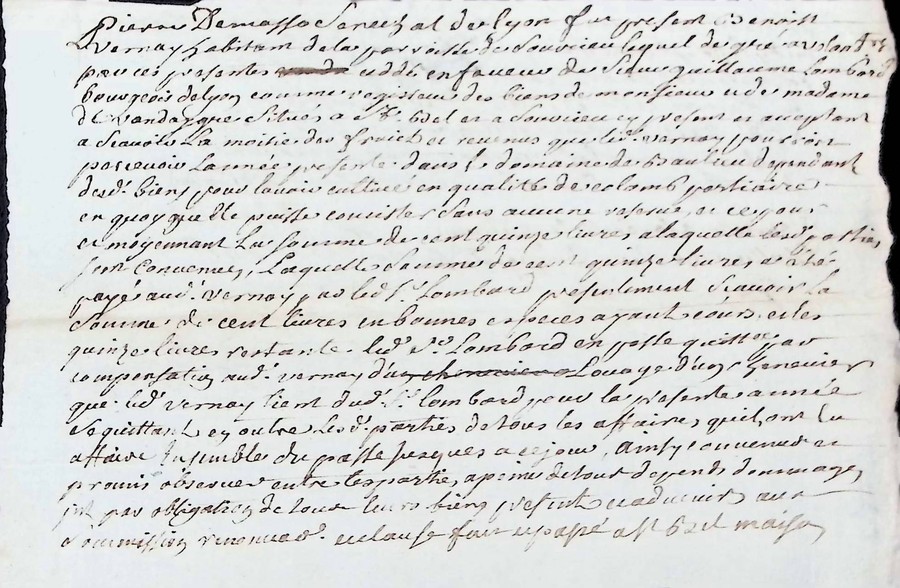 Pierre Demasso Senechal de lyon fut present Benoist
Vernay habitant de la parroisse de Souvrieu lequel de gré
par ces presentes vend cedde en faveur de Sieur guillaume Lombard
bourgeois de lyon comme regisseur des biens de monsieur et de madame
de situés a St. bel et a Souvrieu cy present et acceptant
a Scavoir La moitié des fruict et revenus que led. Vernay pourroit
percevoir Lannée presente dans le domaine de beaulieu dependant
desd. biens pour lavoir cultivé en qualité de colomb partiaire
en quoy quelle puisse concister Sans aucune reserve, et ce pour
et moyennant La Somme de cent quinze livres a laquelle lesd. parties
sont Convenues, Laquelle Somme de cent quinze livres a été
payé aud. Vernay par led. Sr. Lombard presentement Scavoir La
Somme de cent livres en bonnes especes ayant cours et les
quinze livres restante led. Sr. Lombard en passe quittance par
compensation aud. Vernay d'un Louage d'un
que led. Vernay tient dud. Sr. Lombard pour la presente année
Se quittant en outre lesd. parties de tous les affaires quil ont eu
affaire Ensemble du passé jusques a ce jour, Ainsy convenu et
promis observer entre les parties, a peine de tout depends dommages
par obligation de tous leurs biens present et advenir, aux
Soummission renonciaon. et clause fait et passé a St bel maison